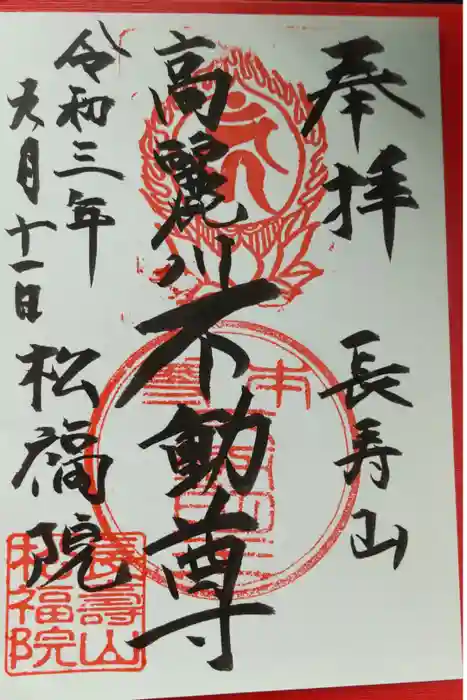 奉拝
長寿山
高麗川不動尊
令和三年
六月十一日
松福院
長壽山
松福院